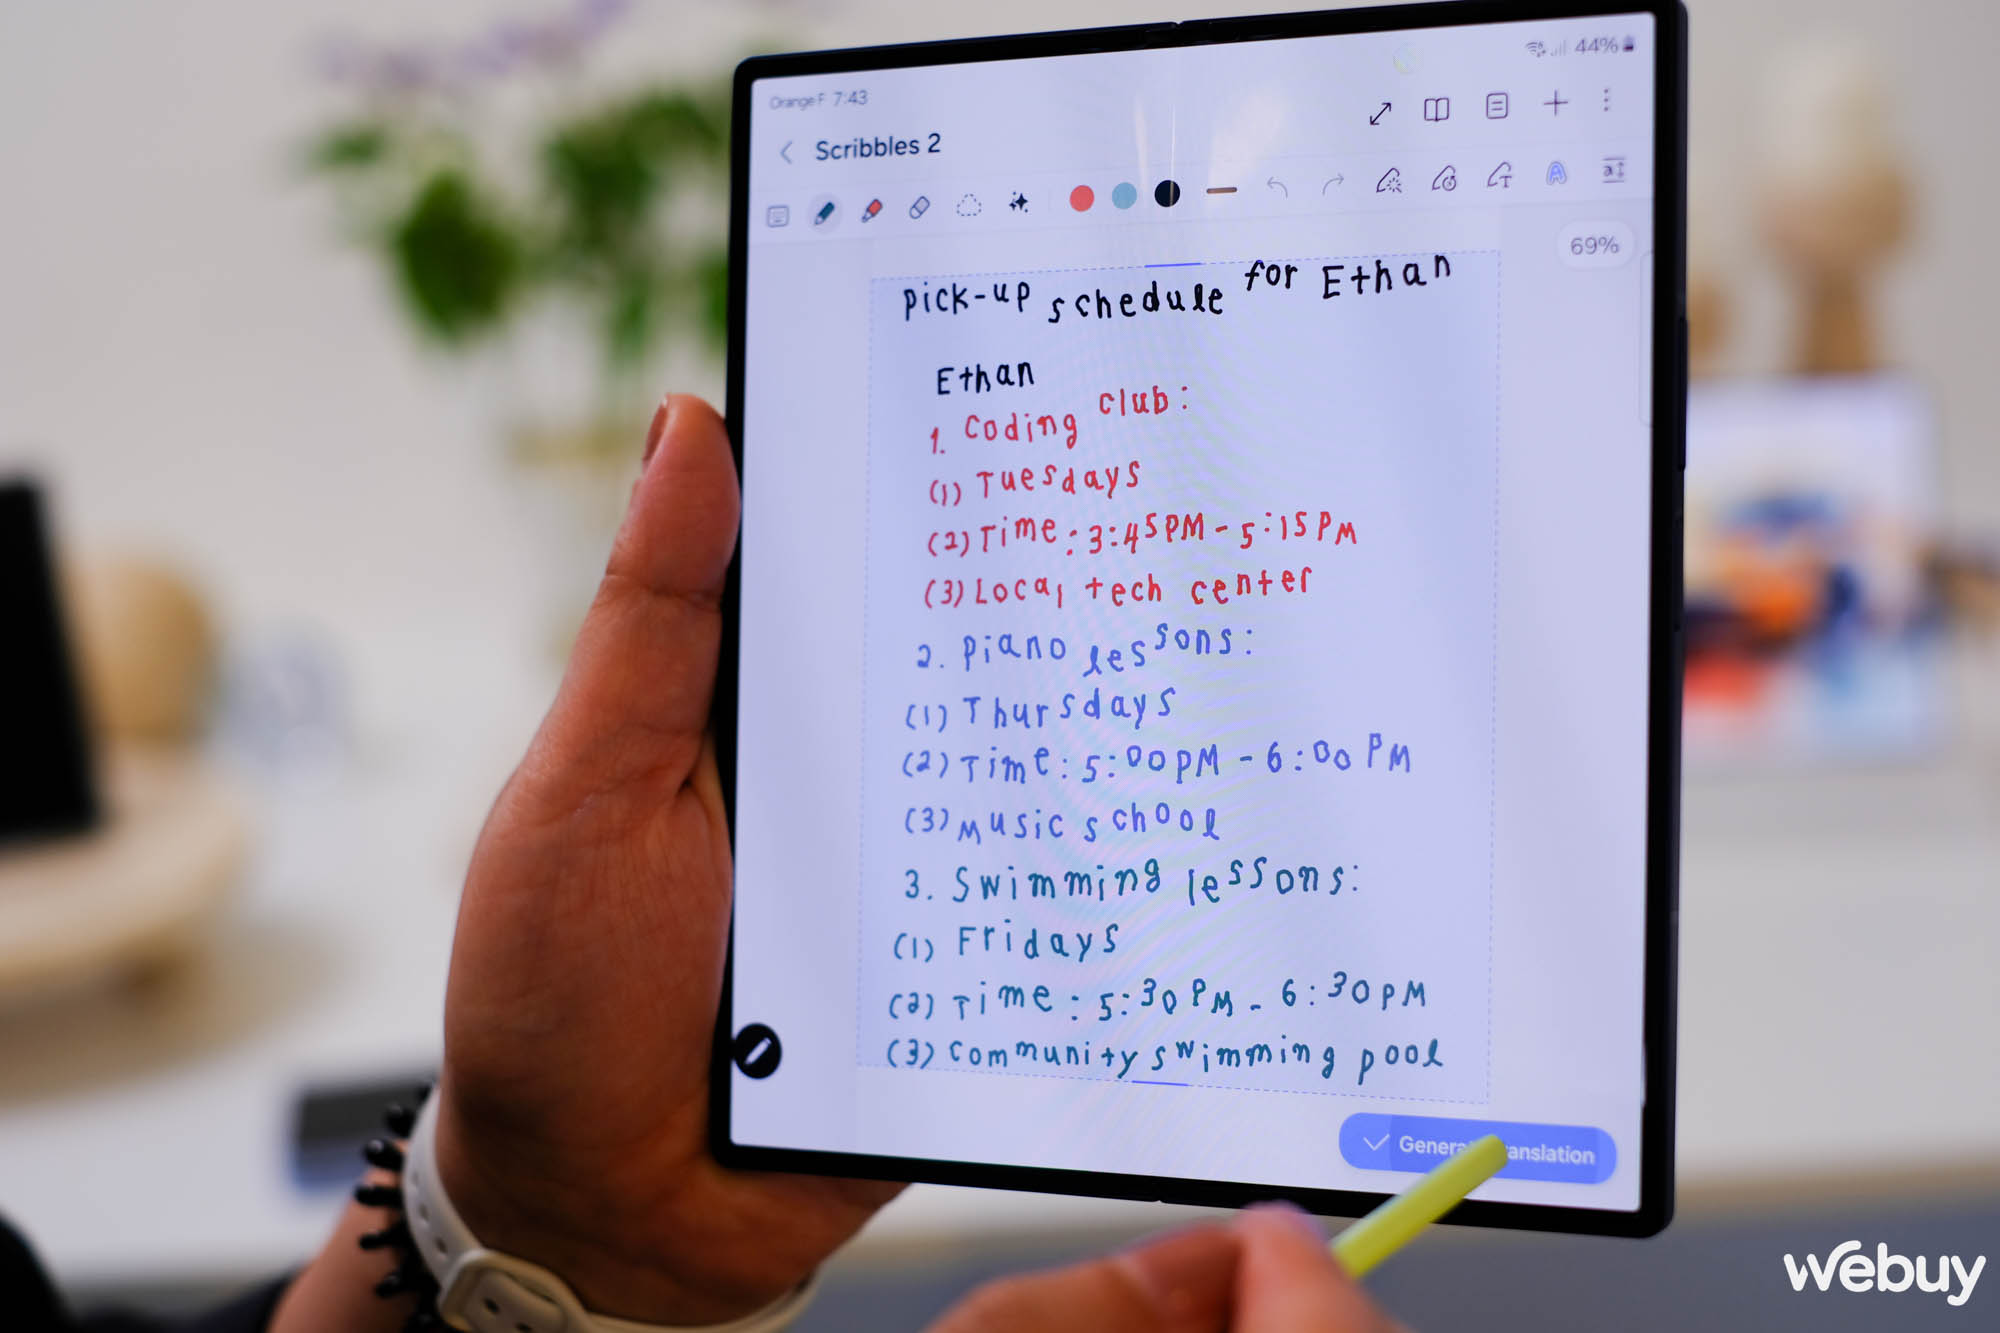 Orange F 7:43
44%
Scribbles 2
69%
Pick-up schedule for Ethan
Ethan
1. Coding club:
(1) Tuesdays
(2) Time: 3:45PM - 5:15PM
(3) Local tech center
2. Piano lessons:
(1) Thursdays
(2) Time: 5:00PM - 6:00PM
(3) Music school
3. Swimming lessons:
(1) Fridays
(2) Time: 5:30PM - 6:30PM
(3) Community swimming pool
webuy